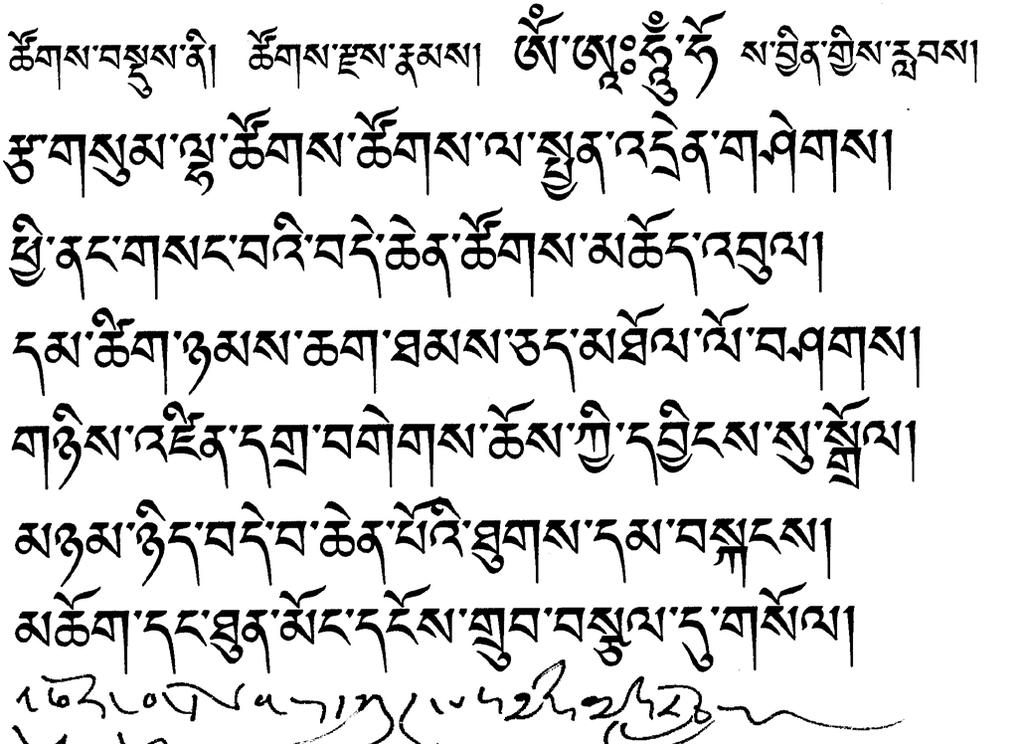 ཚོགས་བསྡུས་ནི། ཚོགས་རྫས་རྣམས། ཨོཾ་ཨཱཿཧཱུྃ་ཧོ ས་བྱིན་གྱིས་རླབས།
རྩ་གསུམ་ལྷ་ཚོགས་ཚོགས་ལ་སྤྱན་འདྲེན་གཤེགས།
ཕྱི་ནང་གསང་བའི་བདེ་ཆེན་ཚོགས་མཆོད་འབུལ།
དམ་ཚིག་ཉམས་ཆག་ཐམས་ཅད་མཐོལ་ལོ་བཤགས།
གཉིས་འཛིན་དགྲ་བགེགས་ཆོས་ཀྱི་དབྱིངས་སུ་སྒྲོལ།
མཉམ་ཉིད་བདེ་བ་ཆེན་པོའི་ཐུགས་དམ་བསྐངས།
མཆོག་དང་ཐུན་མོང་དངོས་གྲུབ་བསྩལ་དུ་གསོལ།